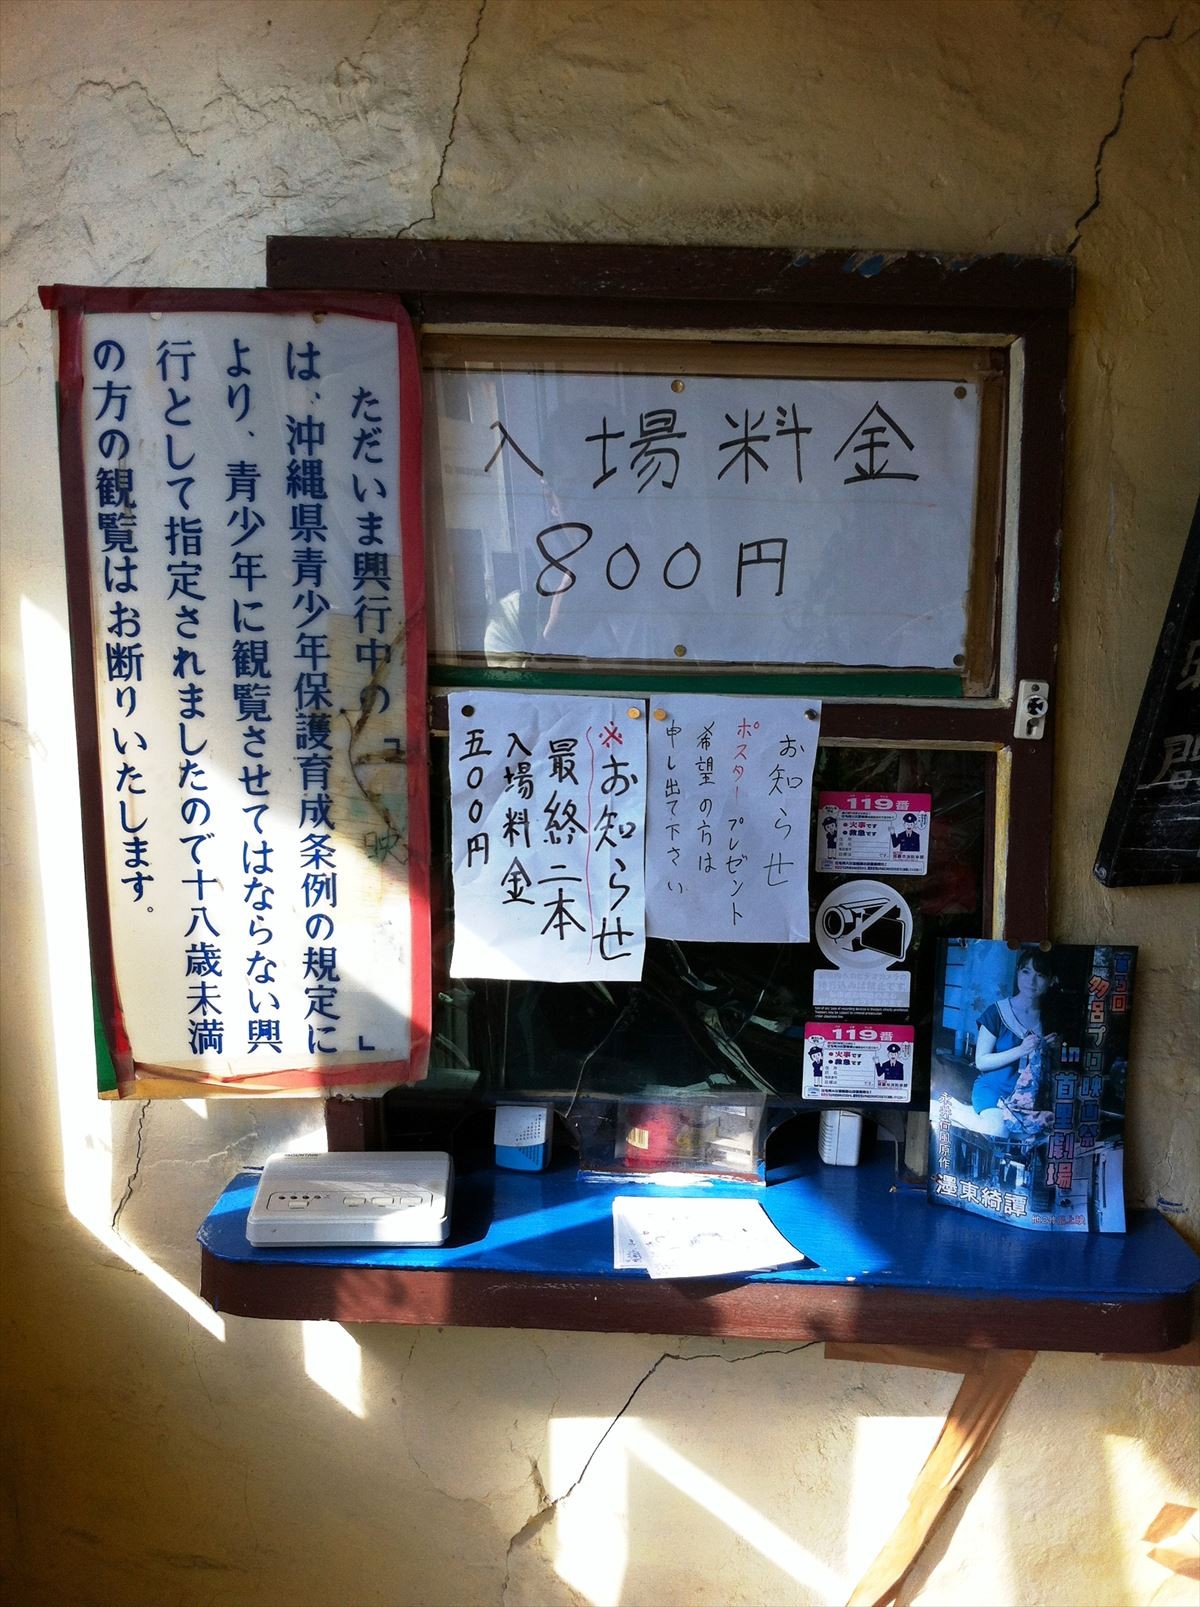 ただいま興行中の「映　」
は、沖縄県青少年保護育成条例の規定に
より、青少年に観覧させてはならない興
行として指定されましたので十八歳未満
の方の観覧はお断りいたします。
入場料金
800円
※お知らせ
最終二本
入場料金
五００円
お知らせ
ポスタープレゼント
希望の方は
申し出て下さい
119番
火事です
救急です
119番
火事です
救急です
in首里劇場
永井荷風原作
濹東綺譚